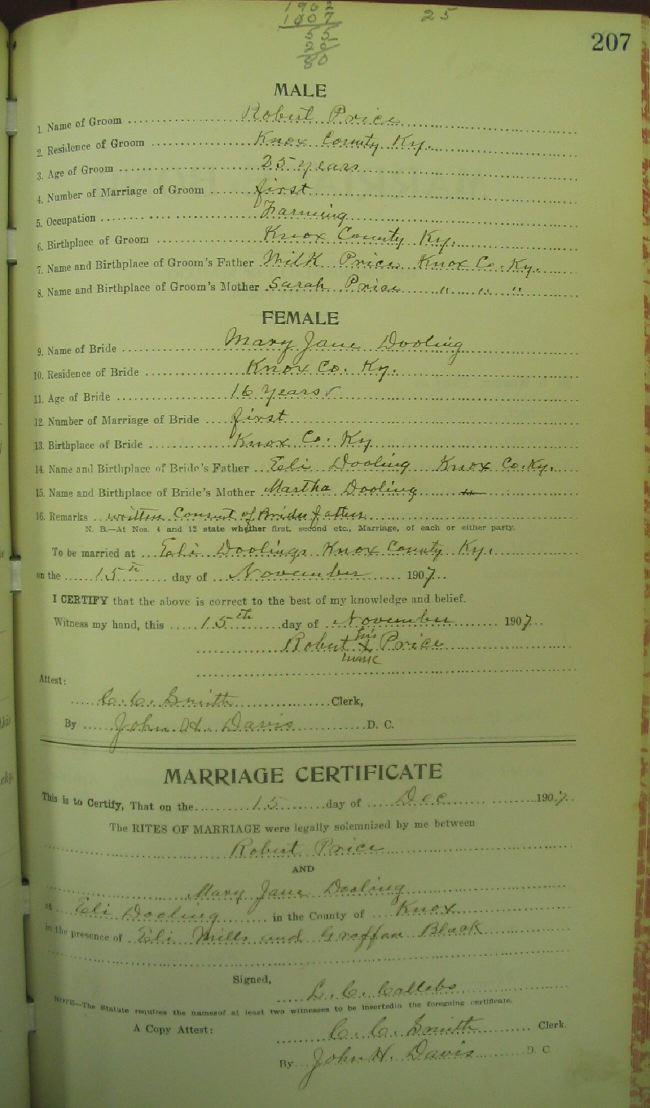 1902
1907
25
55
25
80
207
MALE
1. Name of Groom Robert Price
2. Residence of Groom Knox County Ky.
3. Age of Groom 25 years
4. Number of Marriage of Groom first
5. Occupation Farming
6. Birthplace of Groom Knox County Ky.
7. Name and Birthplace of Groom's Father Wilk Price Knox Co. Ky.
8. Name and Birthplace of Groom's Mother Sarah Price " " "
FEMALE
9. Name of Bride Mary Jane Dooling
10. Residence of Bride Knox Co. Ky.
11. Age of Bride 16 years
12. Number of Marriage of Bride first
13. Birthplace of Bride Knox Co. Ky
14. Name and Birthplace of Bride's Father Eli Dooling Knox Co. Ky.
15. Name and Birthplace of Bride's Mother Martha Dooling "
16. Remarks written Consent of Brides father
N. B.—At Nos. 4 and 12 state whether first, second etc., Marriage, of each or either party.
To be married at Eli Doolings Knox County Ky.
on the 15th day of November 1907.
I CERTIFY that the above is correct to the best of my knowledge and belief.
Witness my hand, this 15th day of November 1907.
Robert his x mark Price
Attest:
C. C. Smith Clerk,
By John H. Davis D. C.
MARRIAGE CERTIFICATE
This is to Certify, That on the 15 day of Dec 1907.
The RITES OF MARRIAGE were legally solemnized by me between
Robert Price
AND
Mary Jane Dooling
at Eli Dooling in the County of Knox
in the presence of Eli Mills and Black
Signed,
L. C. Collebs
NOTE—The Statute requires the names of at least two witnesses to be inserted in the foregoing certificate.
A Copy Attest: C. C. Smith Clerk.
By John H. Davis D. C